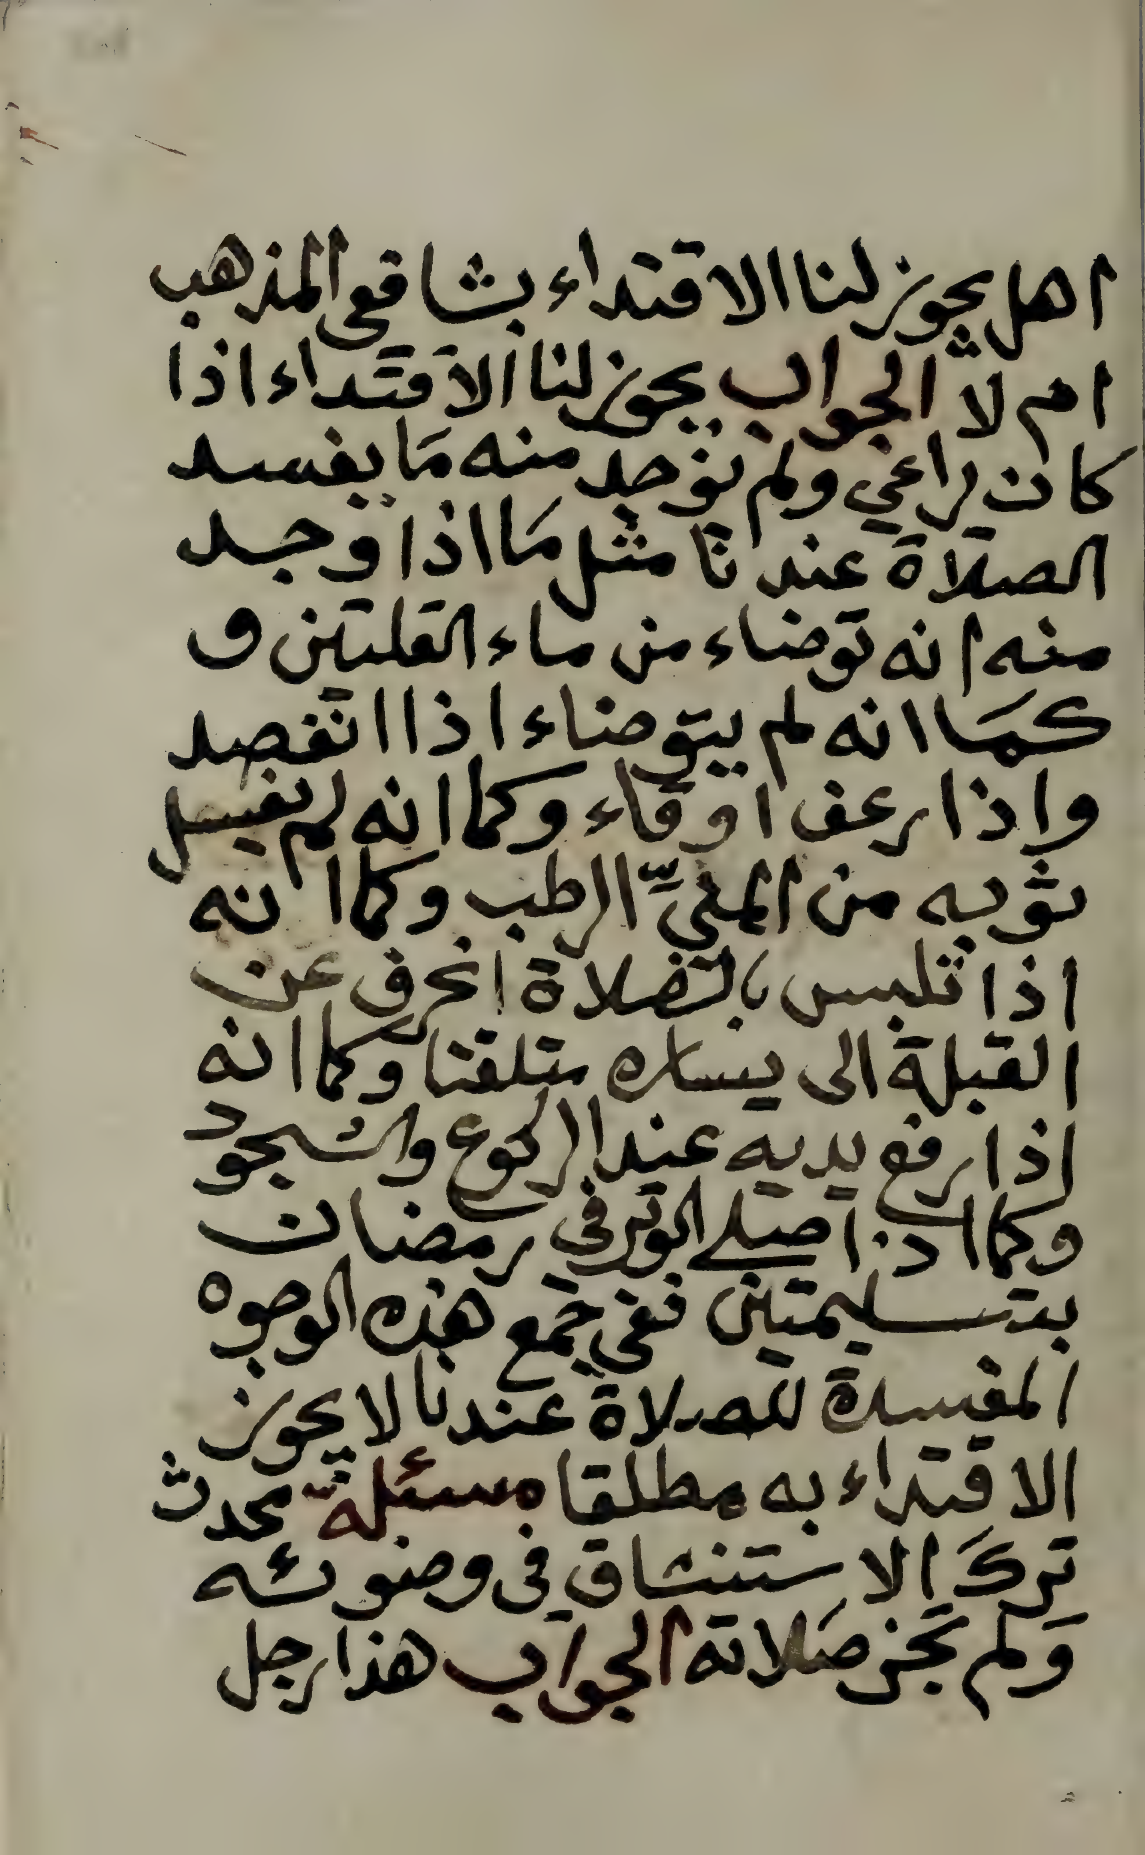 اهل يجوز لنا الاقتداء بشافعى المذهب
ام لا الجواب يجوز لنا الاقتداء اذا
كان يراعي ولم توجد منه مَا يفسد
الصلاة عندنا مثل مَا اذا وجد
منه انه توضاء من ماء القلتين و
كمَا انه لم يتوضاء اذا انفصد
واذا رعف او قاء وكما انه لم يغسل
ثوبه من المنيّ الرطب وكما انه
اذا تلبس بالصلاة انحرف عن
القبلة الى يساره متلفتا وكما انه
اذا رفع يديه عند الركوع والسجود
وكما اذا صلى الوتر فى رمضان
بتسليمتين ففى جمع هذه الوجوه
المفسدة للصلاة عندنا لا يجوز
الاقتداء به مطلقا مسئلة محدث
تركَ الاستنشاق فى وضوئه
وَلم تجز صَلاته الجواب هذا رجل